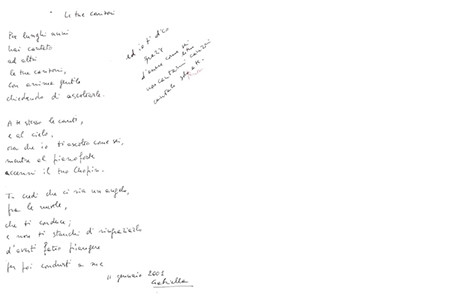 Le tue canzoni
Per lunghi anni
hai cantato
ad altri
le tue canzoni,
con animo gentile
chiedendo di ascoltarle.
le canti,
e al cielo,
ora che io ti ascolto come sei,
mentre al pianoforte
accenni il tuo Chopin.
Tu credi che ci sia un angelo,
fra le nuvole,
che ti conduce;
e non ti stanchi di ringraziarlo
d'averti fatto piangere
per poi condurti a me
11 gennaio 2001
Gabriella
ed io ti dico
grazie
d'essere come sei